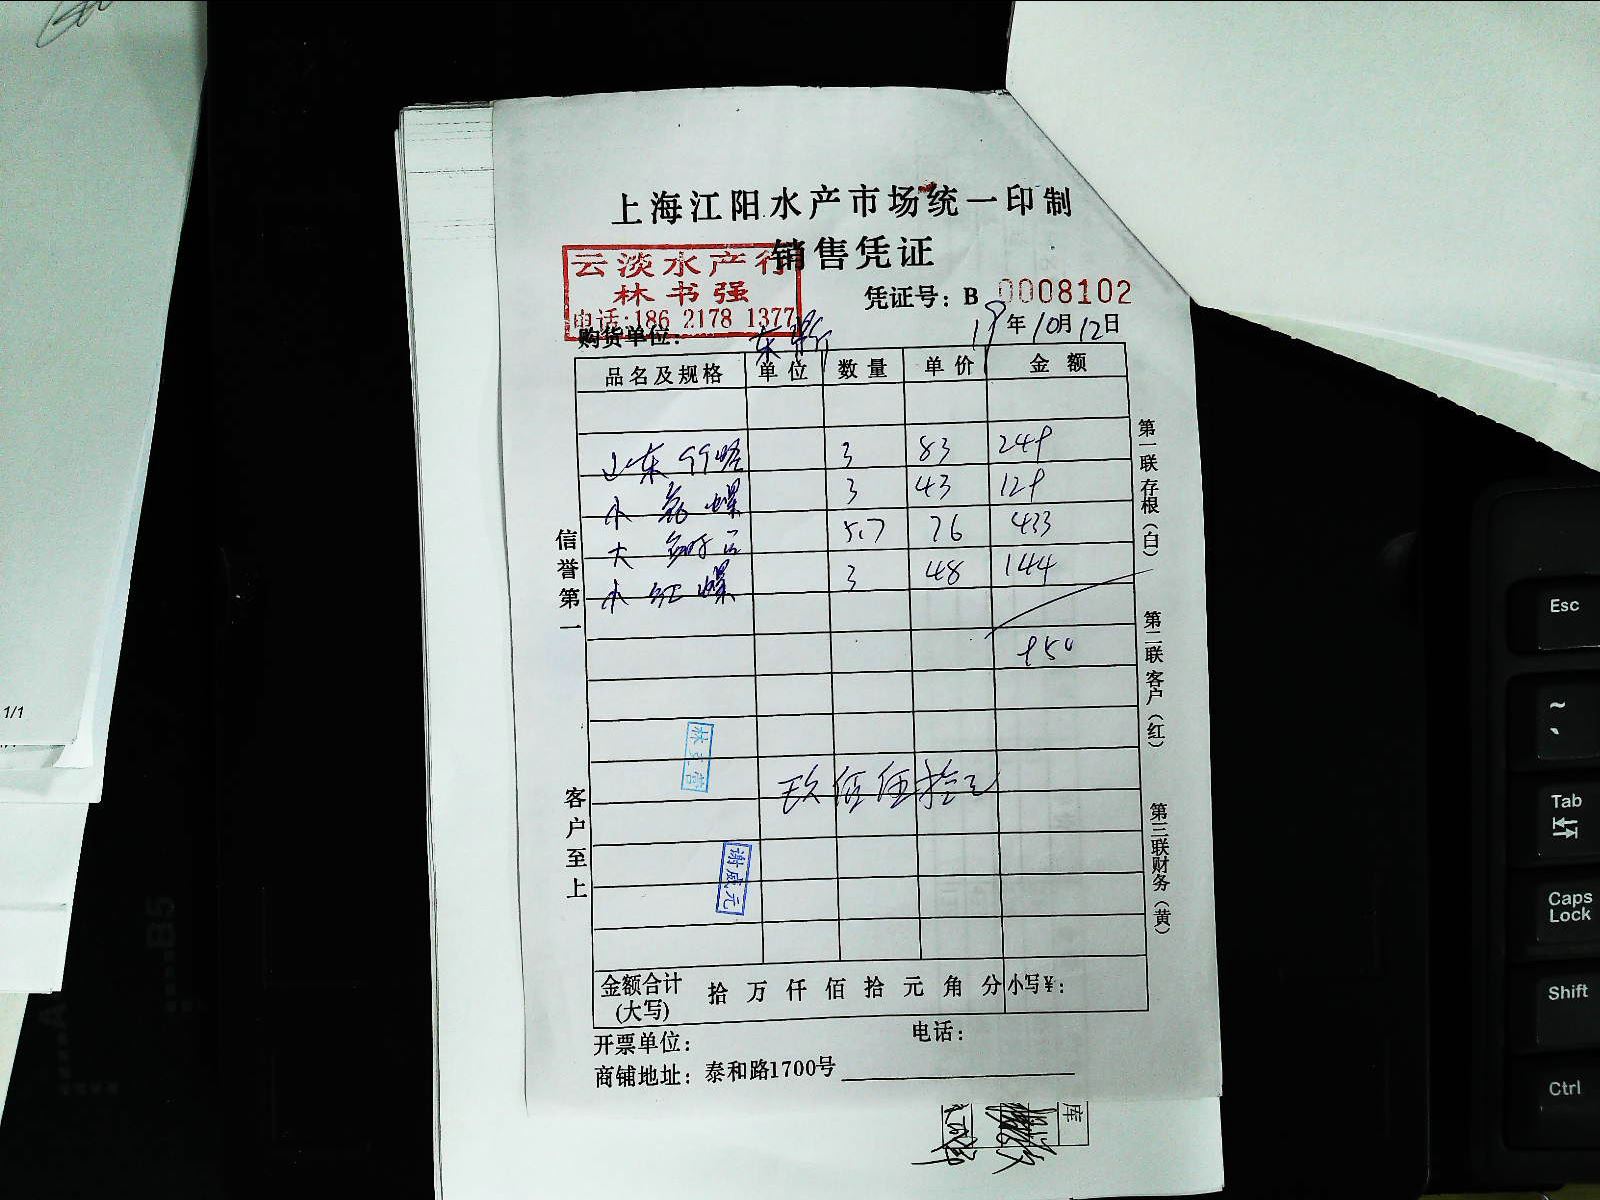 上海江阳水产市场统一印制
销售凭证
云淡水产行
林书强
电话:186 2178 1377
凭证号: B 0008102
购货单位:
19年10月12日
品名及规格 单位 数量 单价 金额
山东 3 83 249
小 螺 3 43 129
大 5.7 76 433
小红螺 3 48 144
950
玖佰伍拾元
金额合计(大写) 拾 万 仟 佰 拾 元 角 分 小写¥:
开票单位: 电话:
商铺地址: 泰和路1700号
信誉第一
客户至上
第一联存根(白)
第二联客户(红)
第三联财务(黄)
谢威元
库
1/1
B5
Esc
~
Tab
Caps Lock
Shift
Ctrl